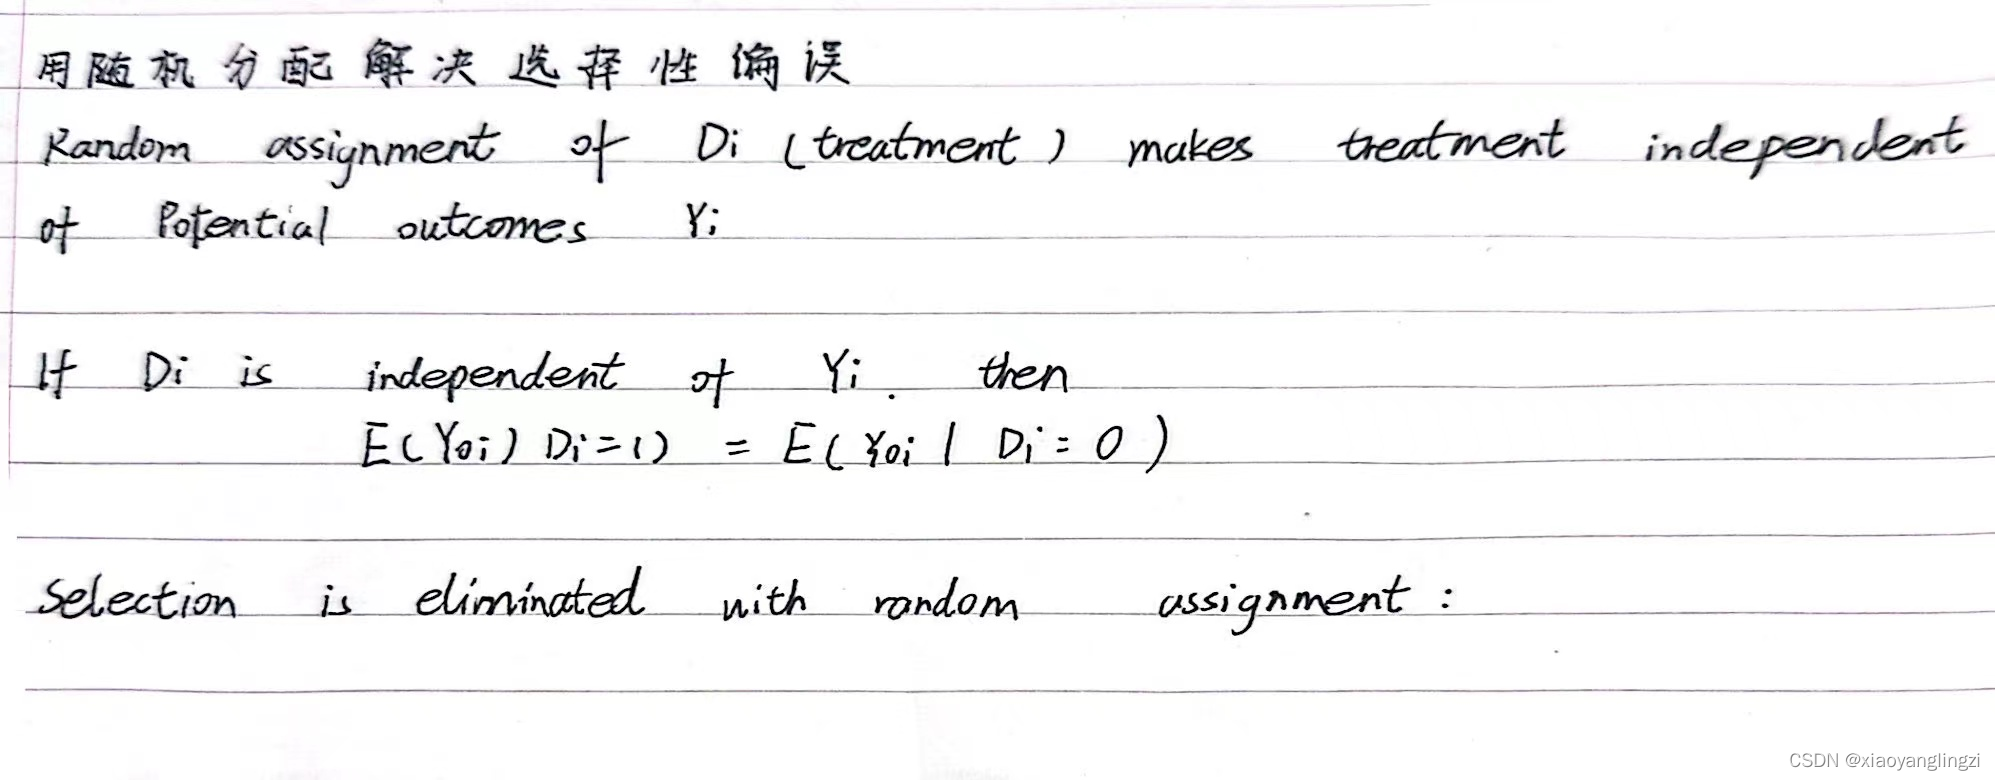 用随机分配解决选择性偏误
Random assignment of Di (treatment) makes treatment independent
of Potential outcomes Yi
If Di is independent of Yi. then
E(Y0i) Di=1) = E(Y0i | Di = 0)
Selection is eliminated with random assignment:
CSDN @xiaoyanglingzi